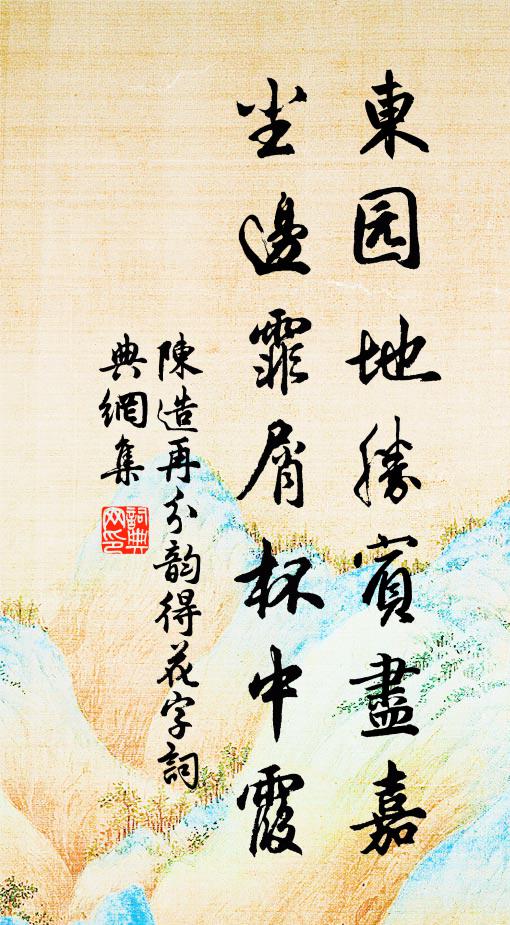 東园地勝賓盡嘉
坐邊霏屑杯中霞
陳造再分韵得花字詞
典網集
詞典
网印